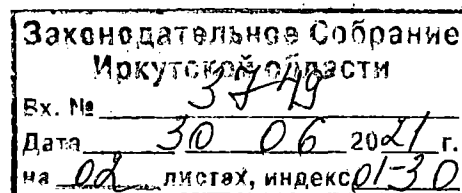 Законодательное Собрание
Иркутской области
Вх. № 3749
Дата 30 06 2021 г.
на 02 листах, индекс 01-30